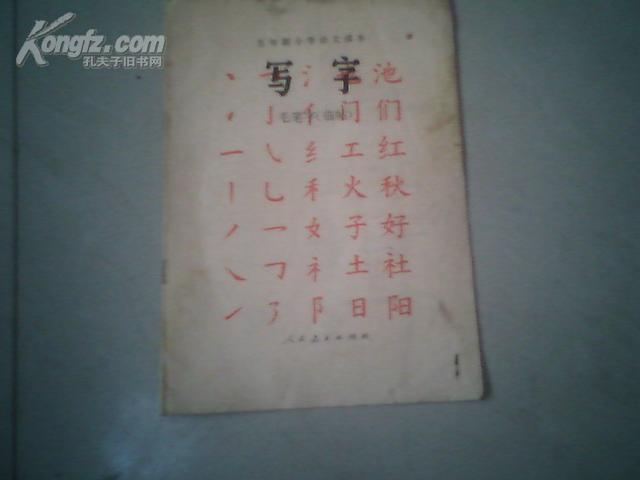 Kongfz.com
孔夫子旧书网
五年制小学语文课本
写字
丶 一 氵 也 池
毛笔字(临帖)
亅 亻 门 们
一 ㇂ 纟 工 红
丨 乚 禾 火 秋
丿 乛 女 子 好
㇏ 𠃌 礻 土 社
㇀ ㇌ 阝 日 阳
人民教育出版社